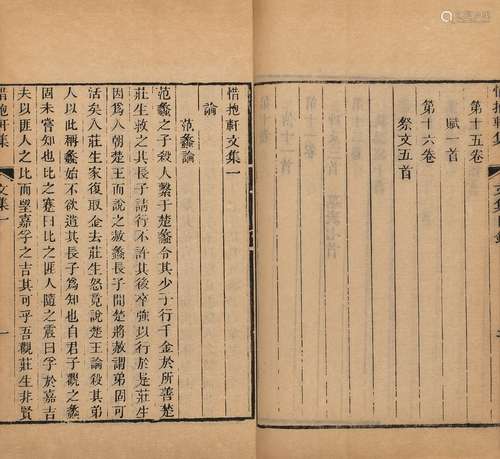 第十五卷
賦一首
第十六卷
祭文五首
惜抱軒文集一
論
范蠡論
范蠡之子殺人繫于楚蠡令其少子行千金於所善楚
莊生救之其長子請行不許其後卒強以行於是莊生
因爲入朝楚王而說之赦蠡長子聞楚將赦謂弟固可
活矣入莊生家復取金去莊生怒竟說楚王論殺其弟
人以此稱蠡始不欲遣其長子爲知也自君子觀之蠡
固未嘗知也比之蹇曰比之匪人隨之震曰孚於嘉吉
夫以匪人之比而望嘉孚之吉其可乎吾觀莊生非賢
惜抱軒集
文集一